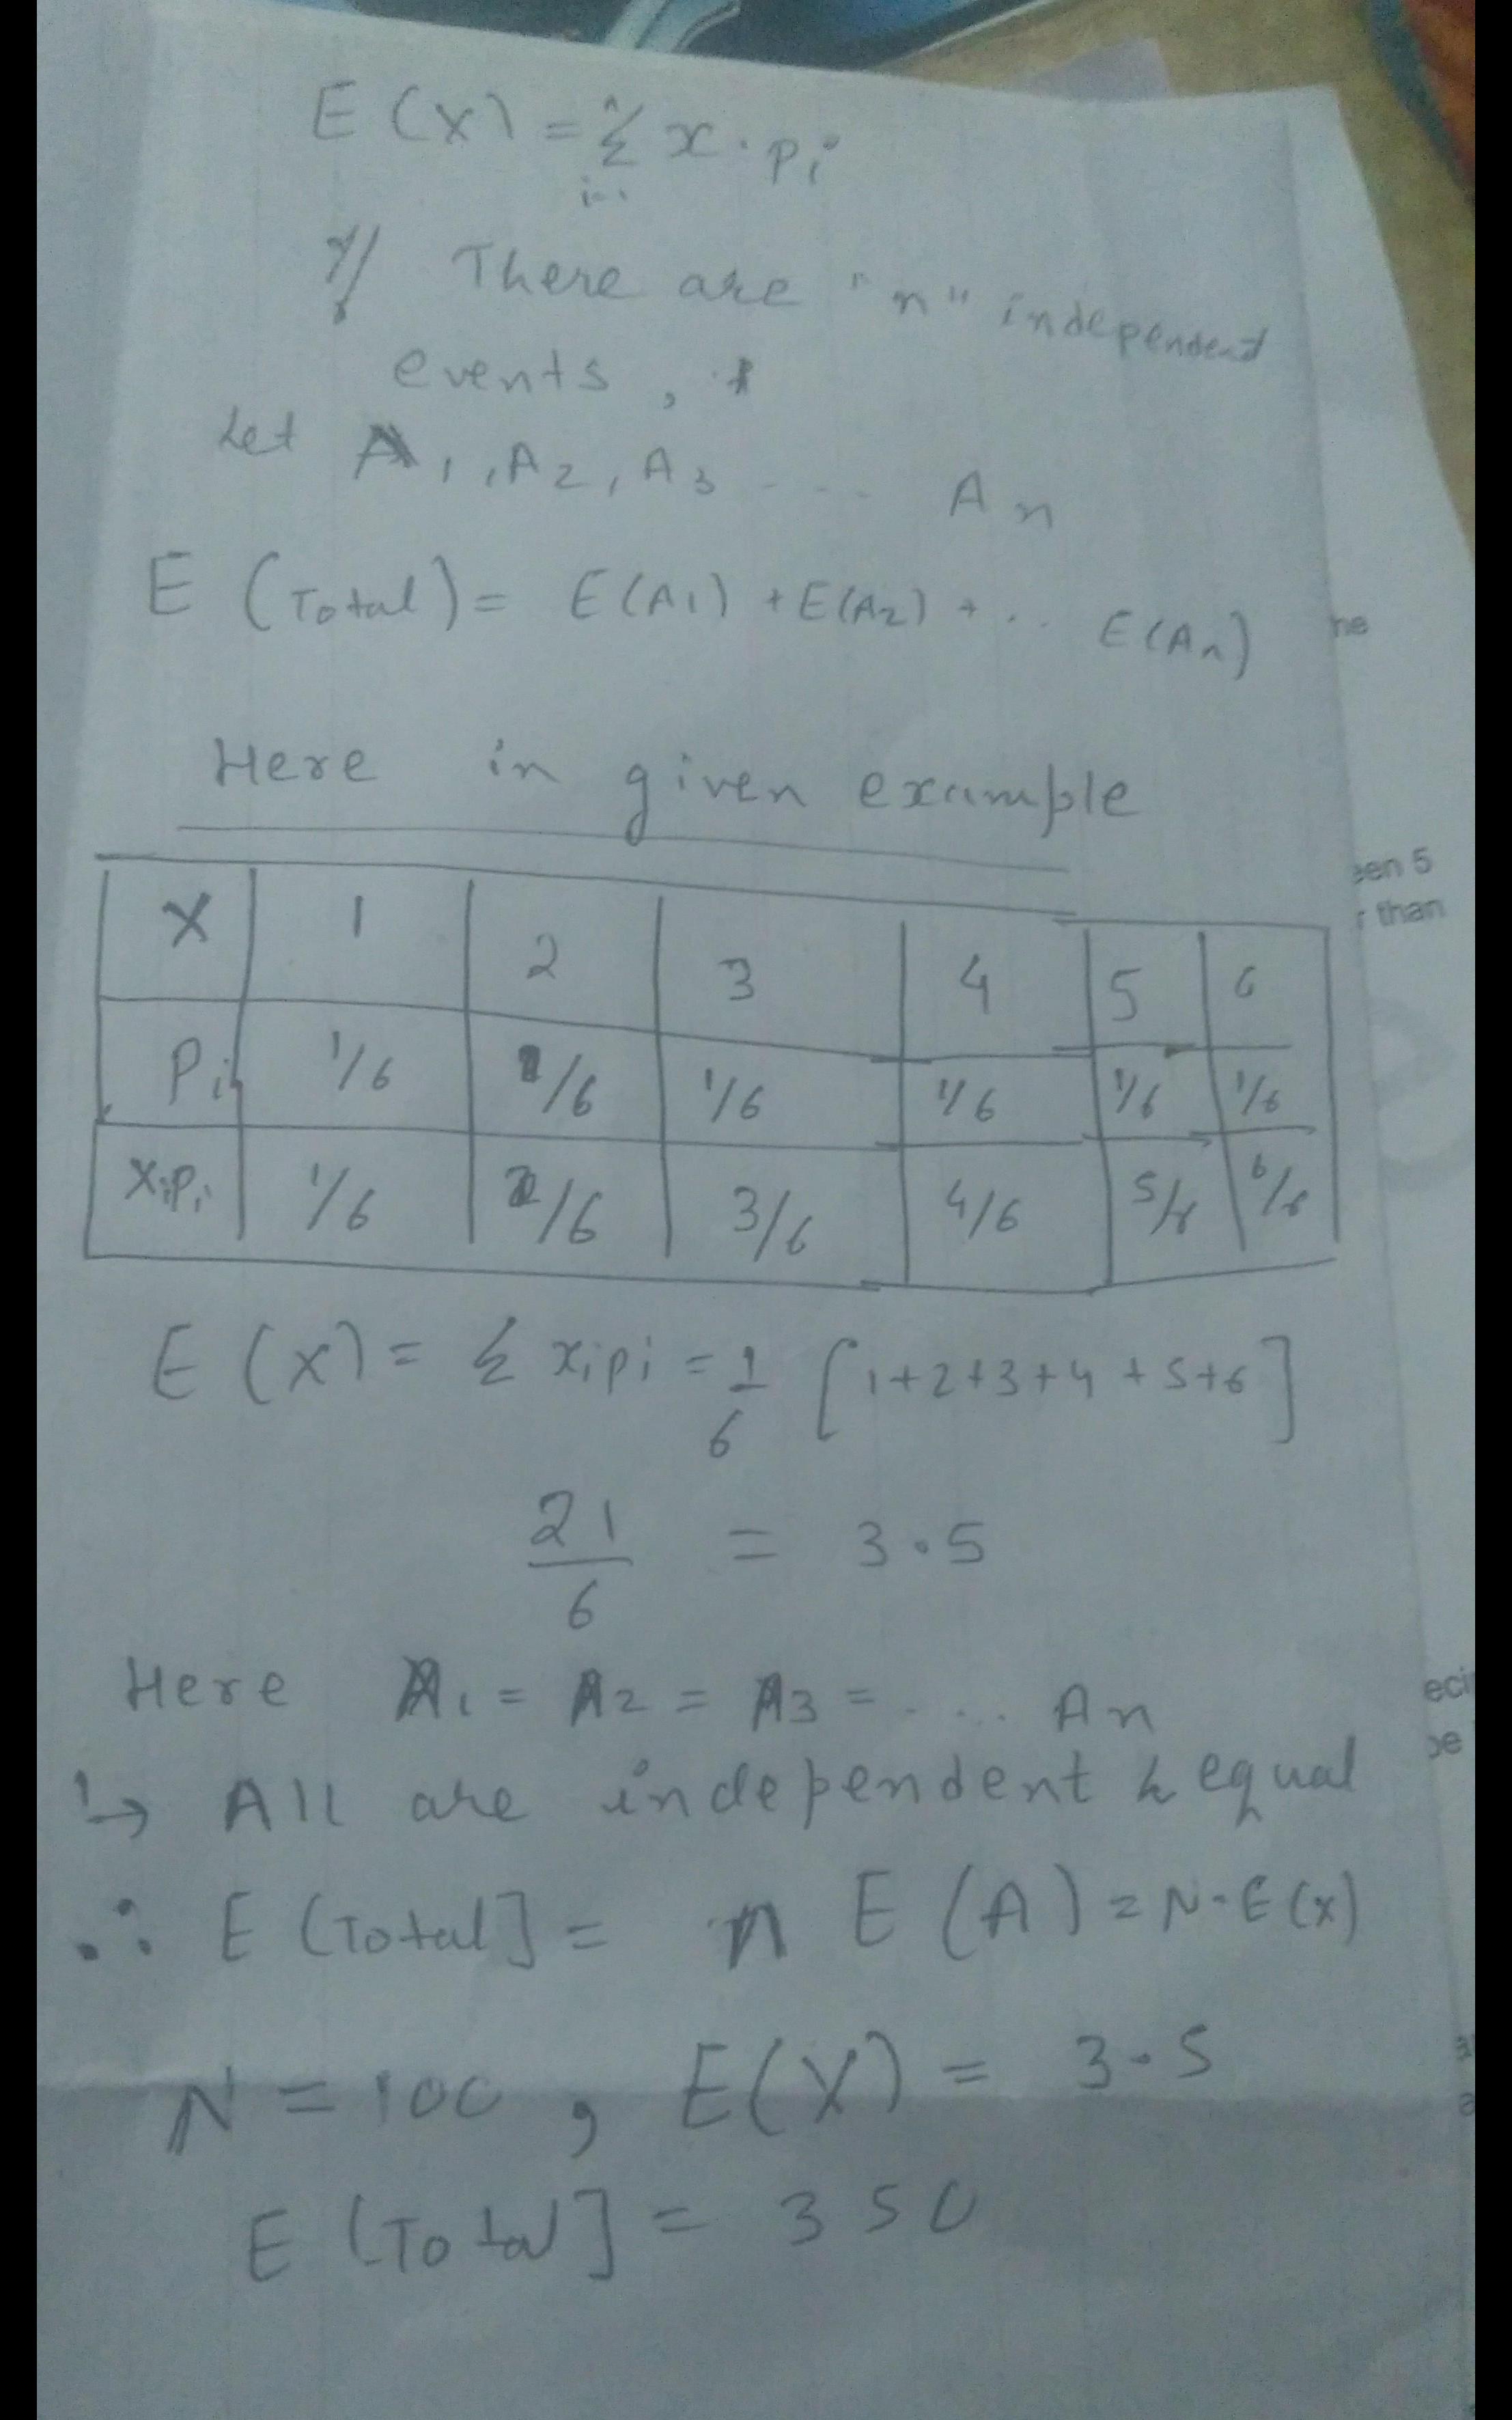 E(X) = Σ x · pi
i=1
If There are "n" independent
events,
Let A1, A2, A3 .... An
E (Total) = E(A1) + E(A2) + .. E(An)
he
Here in given example
een 5
than
X 1 2 3 4 5 6
Pi 1/6 1/6 1/6 1/6 1/6 1/6
XiPi 1/6 2/6 3/6 4/6 5/6 6/6
E (X) = Σ xipi = 1/6 [1+2+3+4+5+6]
21/6 = 3.5
Here A1 = A2 = A3 = .... An
eci
↳ All are independent & equal
∴ E (Total] = n E (A) = N·E(X)
N = 100, E(X) = 3.5
E (Total] = 350